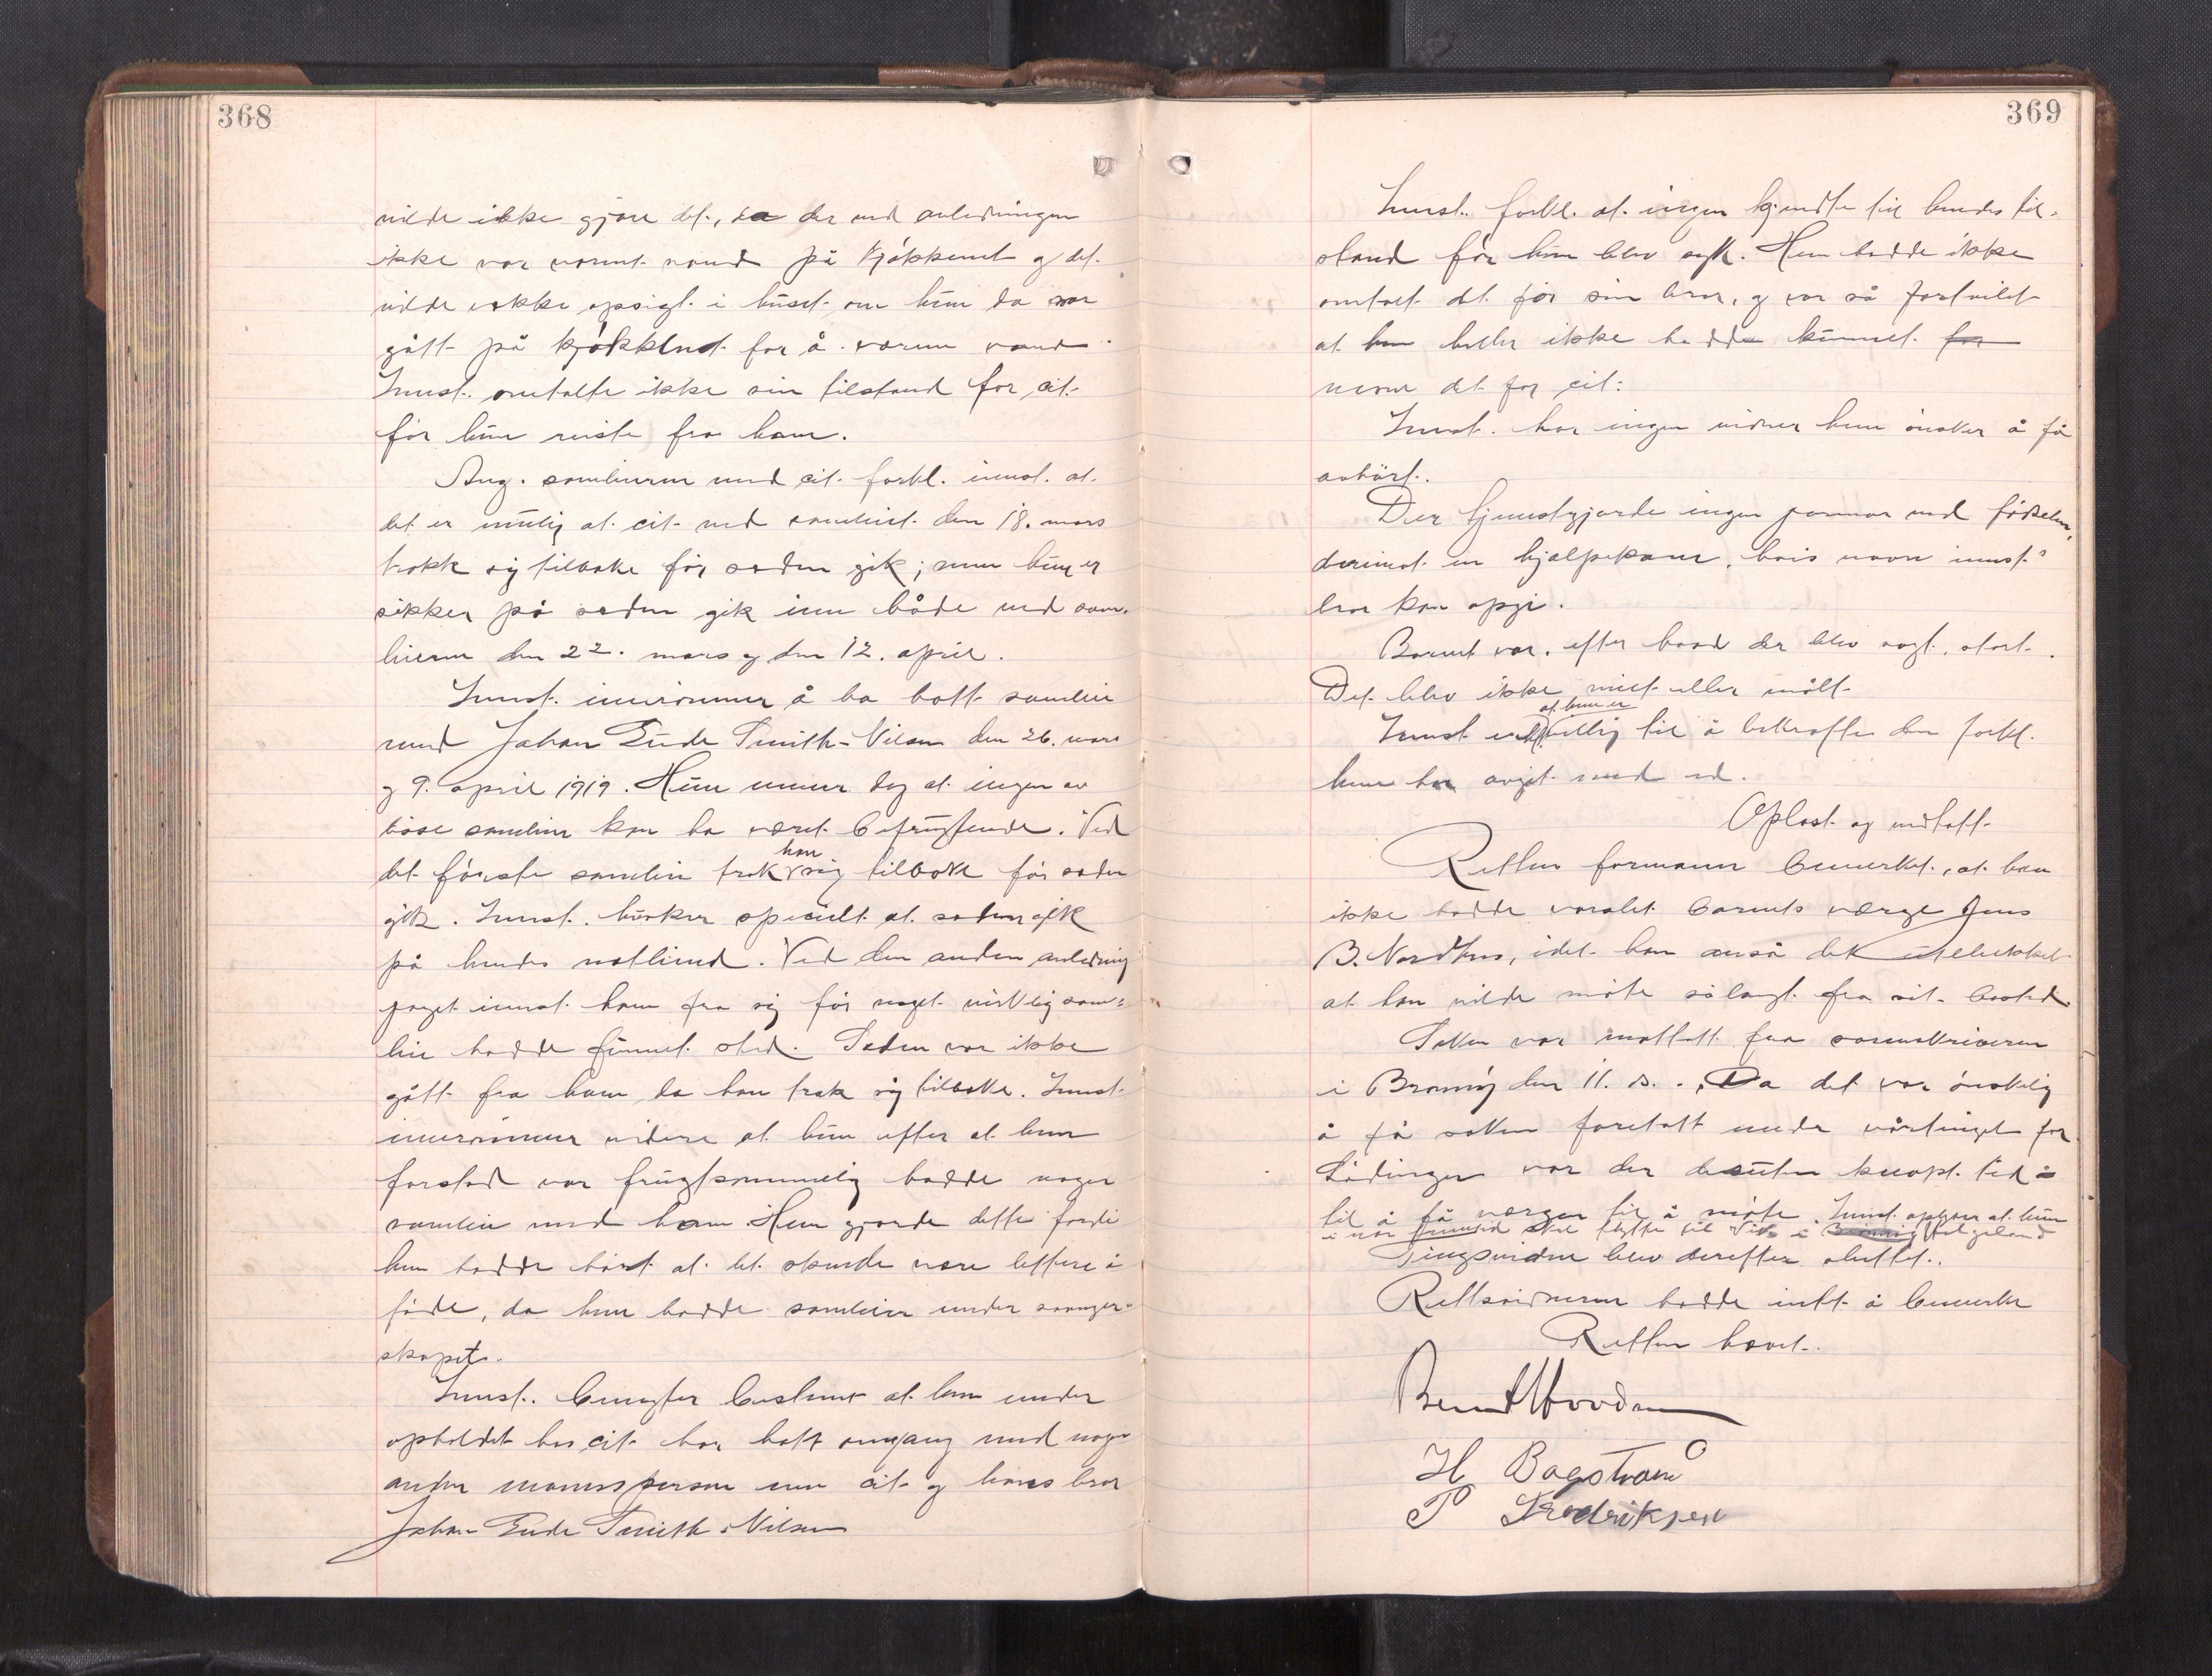 368
vilde ikke gjøre det, da der ved anledningen
ikke var varmt vand på kjøkkenet og det
vilde vække opsigt i huset om hun da var
gått på kjøkkenet for å varme vand.
Innst. omtalte ikke sin tilstand for cit.
før hun reiste fra ham.
Ang. samleierne med cit. forkl. innst. at
det er mulig at cit. ved samleiet den 18. mars
trakk sig tilbake før sæden gik; men hun er
sikker på sæden gik inn både ved sam-
leierne den 22. mars og den 12. april.
Innst. innrømmer å ha hatt samleie
med Johan Eide Smith-Nilsen den 26. mars
og 9. april 1919. Hun mener dog at ingen av
disse samleier kan ha været befrugtende. Ved
det første samleie trak han sig tilbake før sæden
gik. Innst. husker specielt at sæden gik
på hendes natlinned. Ved den anden anledning
jaget innst. ham fra sig før noget virkelig sam-
leie hadde funnet sted. Sæden var ikke
gått fra ham da han trak sig tilbake. Innst.
innrømmer videre at hun efter at hun
forstod var frugtsommelig hadde nogen
samleie med ham. Hun gjorde dette fordi
hun hadde hørt at det skulde være lettere å
føde, da hun hadde samleier under svanger-
skapet.
Innst. benegter bestemt at hun under
opholdet hos cit. har hatt omgang med nogen
anden mannsperson enn cit. og hans bror
Johan Eide Smith-Nilsen
369
Innst. forkl. at ingen kjendte til hendes til-
stand før hun blev syk. Hun hadde ikke
omtalt det for sin bror, og var så fortvilet
at hun heller ikke hadde kunnet for
nevne det for cit.
Innst. har ingen vidner hun ønsker å få
avhørt.
Der tjenstgjorde ingen jormor ved fødselen,
derimot en hjælpekone, hvis navn innst.s
bror kan opgi.
Barnet var, efter hvad der blev sagt, stort.
Det blev ikke veiet eller målt
Innst. at hun er villig til å bekræfte den forkl.
hun har avgit med ed.
Oplæst og vedtatt.
Rettens formann bemerket, at han
ikke hadde varslet barnets værge Jens
B. Nordhus, idet han anså det utelukket
at han vilde møte sålangt fra sit bosted.
Saken var mottatt fra sorenskriveren
i Brønnøy den 11. ds. Da det var ønskelig
å få saken foretatt under vårtinget for
Lødingen var der desuten knapt tid
til å få værgen til å møte. Innst. oplyser at hun
i nær fremtid skal flytte til Vik i Brønnøy Helgeland
Tingsvidnet blev derefter sluttet.
Rettsvidnerne hadde intet å bemerke
Retten hævet.
H Bagstrøm
P Fredriksen